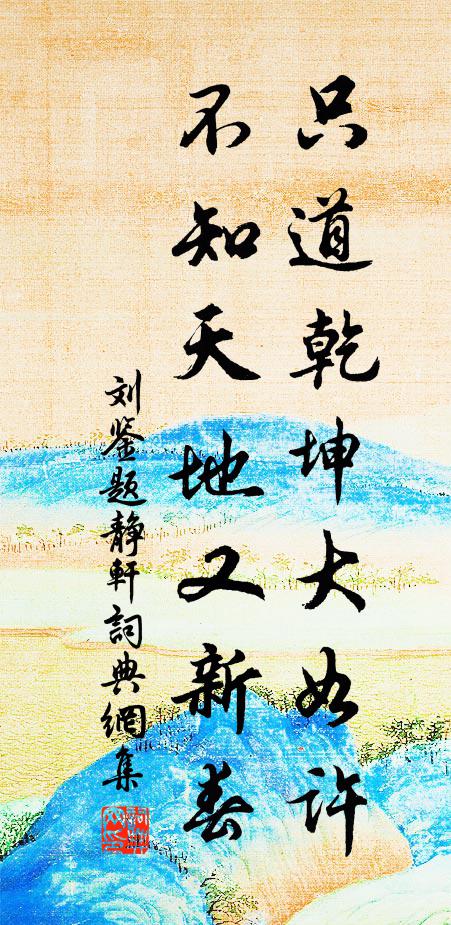 只道乾坤大如许
不知天地又新春
刘鉴题静軒詞典網集